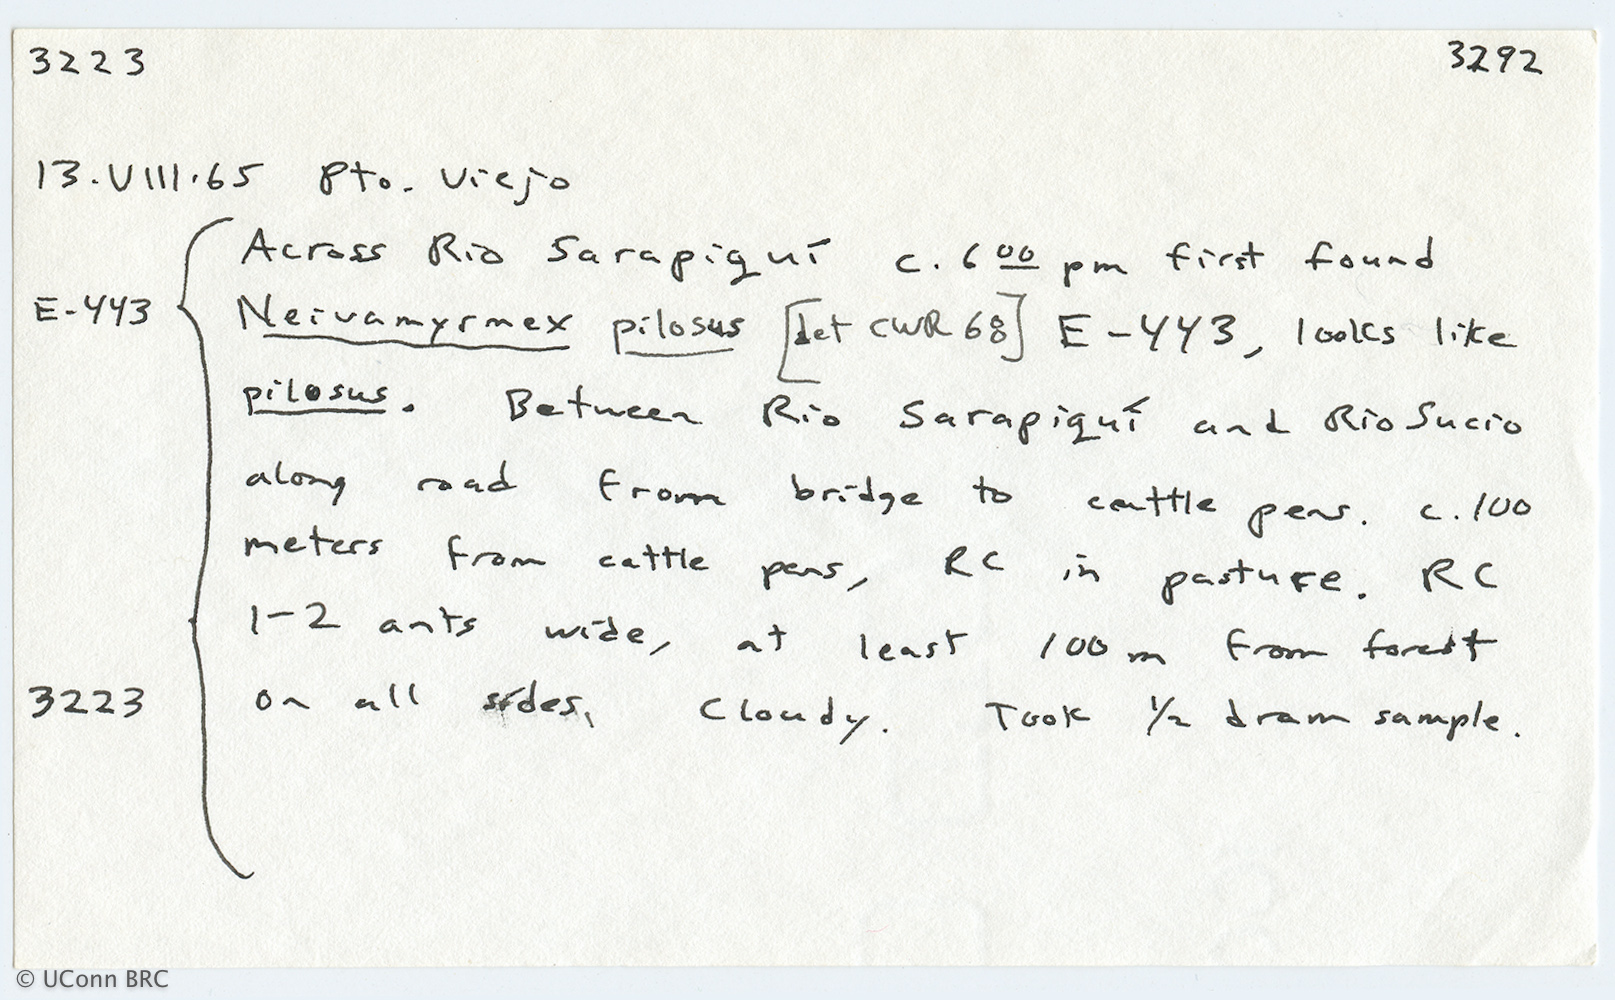 3223 3292
13.VIII.65 Pto. Viejo
Across Rio Sarapiquí c. 6 00 pm first found
E-443 Neivamyrmex pilosus [det CWR 68] E-443, looks like
pilosus. Between Rio Sarapiquí and Rio Sucio
along road from bridge to cattle pens. c. 100
meters from cattle pens, RC in pasture. RC
1-2 ants wide, at least 100 m from forest
3223 on all sides. Cloudy. Took 1/2 dram sample.
© UConn BRC